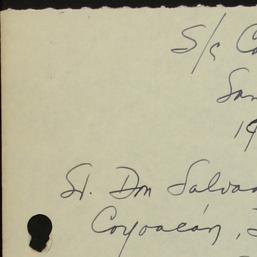 S/c C
San
19
Sr. Don Salva
Coyoacán,